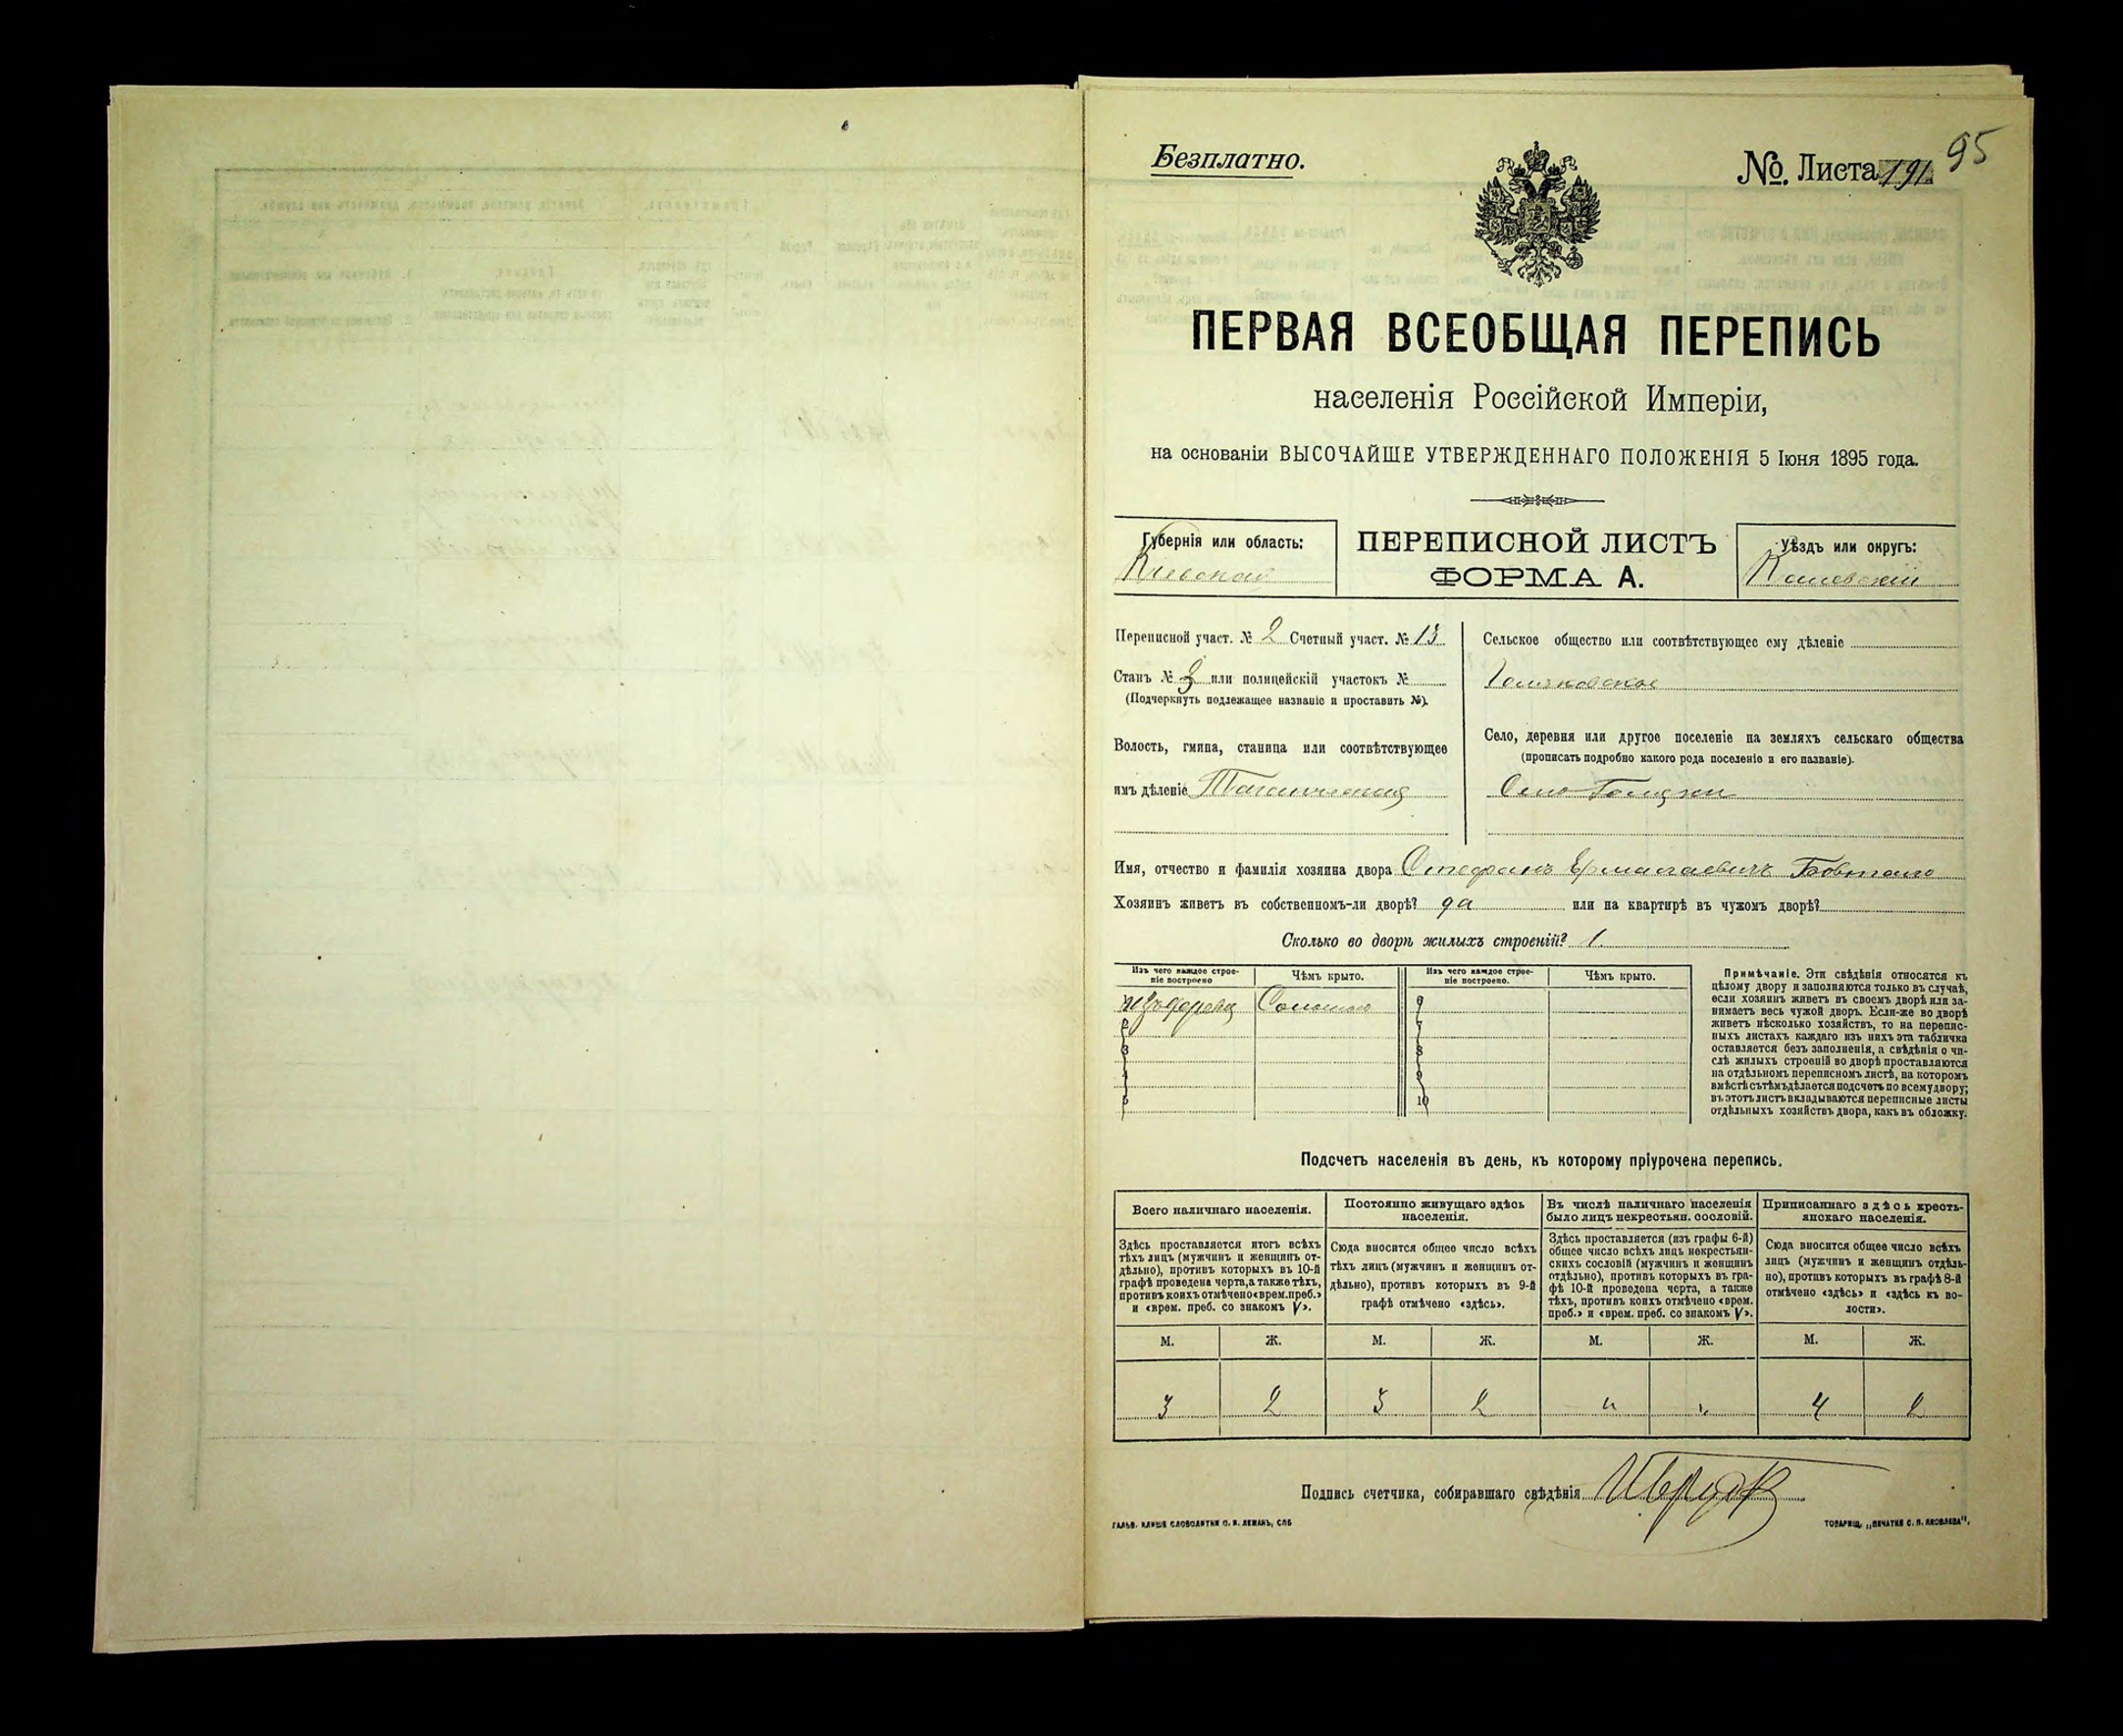 Безплатно.
№ Листа 191 95
ПЕРВАЯ ВСЕОБЩАЯ ПЕРЕПИСЬ
населенія Россійской Имперіи,
на основаніи ВЫСОЧАЙШЕ УТВЕРЖДЕННАГО ПОЛОЖЕНІЯ 5 Іюня 1895 года.
Губернія или область:
Кіевская
ПЕРЕПИСНОЙ ЛИСТЪ
ФОРМА А.
Уѣздъ или округъ:
Переписной участ. № 2 Счетный участ. № 13
Станъ № или полицейскій участокъ №
(Подчеркнуть подлежащее названіе и проставить №).
Волость, гмина, станица или соотвѣтствующее
имъ дѣленіе
Сельское общество или соотвѣтствующее ему дѣленіе
Село, деревня или другое поселеніе на земляхъ сельскаго общества
(прописать подробно какого рода поселеніе и его названіе).
Село
Имя, отчество и фамилія хозяина двора Стефанъ Ермолаевичъ
Хозяинъ живетъ въ собственномъ-ли дворѣ? да или на квартирѣ въ чужомъ дворѣ?
Сколько во дворѣ жилыхъ строеній? 1.
Изъ чего каждое строе-
ніе построено
Чѣмъ крыто.
Изъ чего каждое строе-
ніе построено.
Чѣмъ крыто.
изъ дерева Соломою
2
3
4
5
6
7
8
9
10
Примѣчаніе. Эти свѣдѣнія относятся къ
цѣлому двору и заполняются только въ случаѣ,
если хозяинъ живетъ въ своемъ дворѣ или за-
нимаетъ весь чужой дворъ. Если-же во дворѣ
живетъ нѣсколько хозяйствъ, то на перепис-
ныхъ листахъ каждаго изъ нихъ эта табличка
оставляется безъ заполненія, а свѣдѣнія о чи-
слѣ жилыхъ строеній во дворѣ проставляются
на отдѣльномъ переписномъ листѣ, на которомъ
вмѣстѣ съ тѣмъ дѣлается подсчетъ по всему двору;
въ этотъ листъ вкладываются переписные листы
отдѣльныхъ хозяйствъ двора, какъ въ обложку.
Подсчетъ населенія въ день, къ которому пріурочена перепись.
Всего наличнаго населенія.
Здѣсь проставляется итогъ всѣхъ
тѣхъ лицъ (мужчинъ и женщинъ от-
дѣльно), противъ которыхъ въ 10-й
графѣ проведена черта, а также тѣхъ,
противъ коихъ отмѣчено «врем. преб.»
и «врем. преб. со знакомъ V».
Постоянно живущаго здѣсь
населенія.
Сюда вносится общее число всѣхъ
тѣхъ лицъ (мужчинъ и женщинъ от-
дѣльно), противъ которыхъ въ 9-й
графѣ отмѣчено «здѣсь».
Въ числѣ наличнаго населенія
было лицъ некрестьян. сословій.
Здѣсь проставляется (изъ графы 6-й)
общее число всѣхъ лицъ некрестьян-
скихъ сословій (мужчинъ и женщинъ
отдѣльно), противъ которыхъ въ гра-
фѣ 10-й проведена черта, а также
тѣхъ, противъ коихъ отмѣчено «врем.
преб.» и «врем. преб. со знакомъ V».
Приписаннаго здѣсь кресть-
янскаго населенія.
Сюда вносится общее число всѣхъ
лицъ (мужчинъ и женщинъ отдѣль-
но), противъ которыхъ въ графѣ 8-й
отмѣчено «здѣсь» и «здѣсь къ во-
лости».
М. Ж. М. Ж. М. Ж. М. Ж.
3 2 3 2 " " 4 2
Подпись счетчика, собиравшаго свѣдѣнія
ГАЛЬВ. КЛИШЕ СЛОВОЛИТНИ О. И. ЛЕМАНЪ, СПБ
ТОВАРИЩ. „ПЕЧАТНЯ С. П. ЯКОВЛЕВА“.